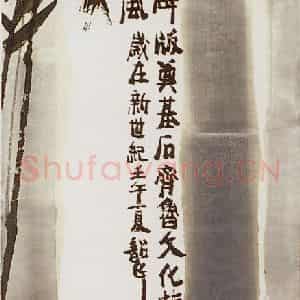 版奠基石齊魯文化
風
歲在新世紀年夏
ShufaWang.CN